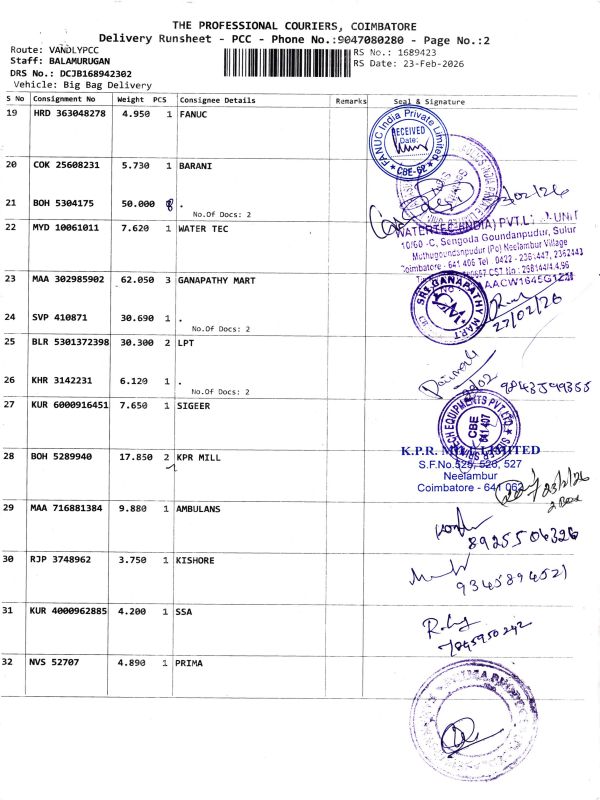 THE PROFESSIONAL COURIERS, COIMBATORE
Delivery Runsheet - PCC - Phone No.:9047080280 - Page No.:2
Route: VANDLYPCC
RS No.: 1689423
Staff: BALAMURUGAN
RS Date: 23-Feb-2026
DRS No.: DCJB168942302
Vehicle: Big Bag Delivery
S No Consignment No Weight PCS Consignee Details Remarks Seal & Signature
19 HRD 363048278 4.950 1 FANUC
FANUC India Private Limited
RECEIVED
Date:
* CBE-62 *
20 COK 25608231 5.730 1 BARANI
21 BOH 5304175 50.000 .
No.Of Docs: 2
22 MYD 10061011 7.620 1 WATER TEC
WATERTEC (INDIA) PVT.LTD. UNIT
10/60 -C, Sengoda Goundanpudur, Sulur
Muthugoundanpudur (Po) Neelambur Village
Coimbatore - 641 406 Tel 0422 - 236 447, 2362443
23 MAA 302985902 62.050 3 GANAPATHY MART
SRI GANAPATHY MART
GM
27/02/26
24 SVP 410871 30.690 1 .
No.Of Docs: 2
25 BLR 5301372398 30.300 2 LPT
26 KHR 3142231 6.120 1 .
No.Of Docs: 2
9843549355
27 KUR 6000916451 7.650 1 SIGEER
CBE
641 407
28 BOH 5289940 17.850 2 KPR MILL
K.P.R. MILL LIMITED
S.F.No.525, 526, 527
Neelambur
Coimbatore - 641 062
23/2/26
2 Box
29 MAA 716881384 9.880 1 AMBULANS
8925506326
30 RJP 3748962 3.750 1 KISHORE
9345894521
31 KUR 4000962885 4.200 1 SSA
7845950242
32 NVS 52707 4.890 1 PRIMA